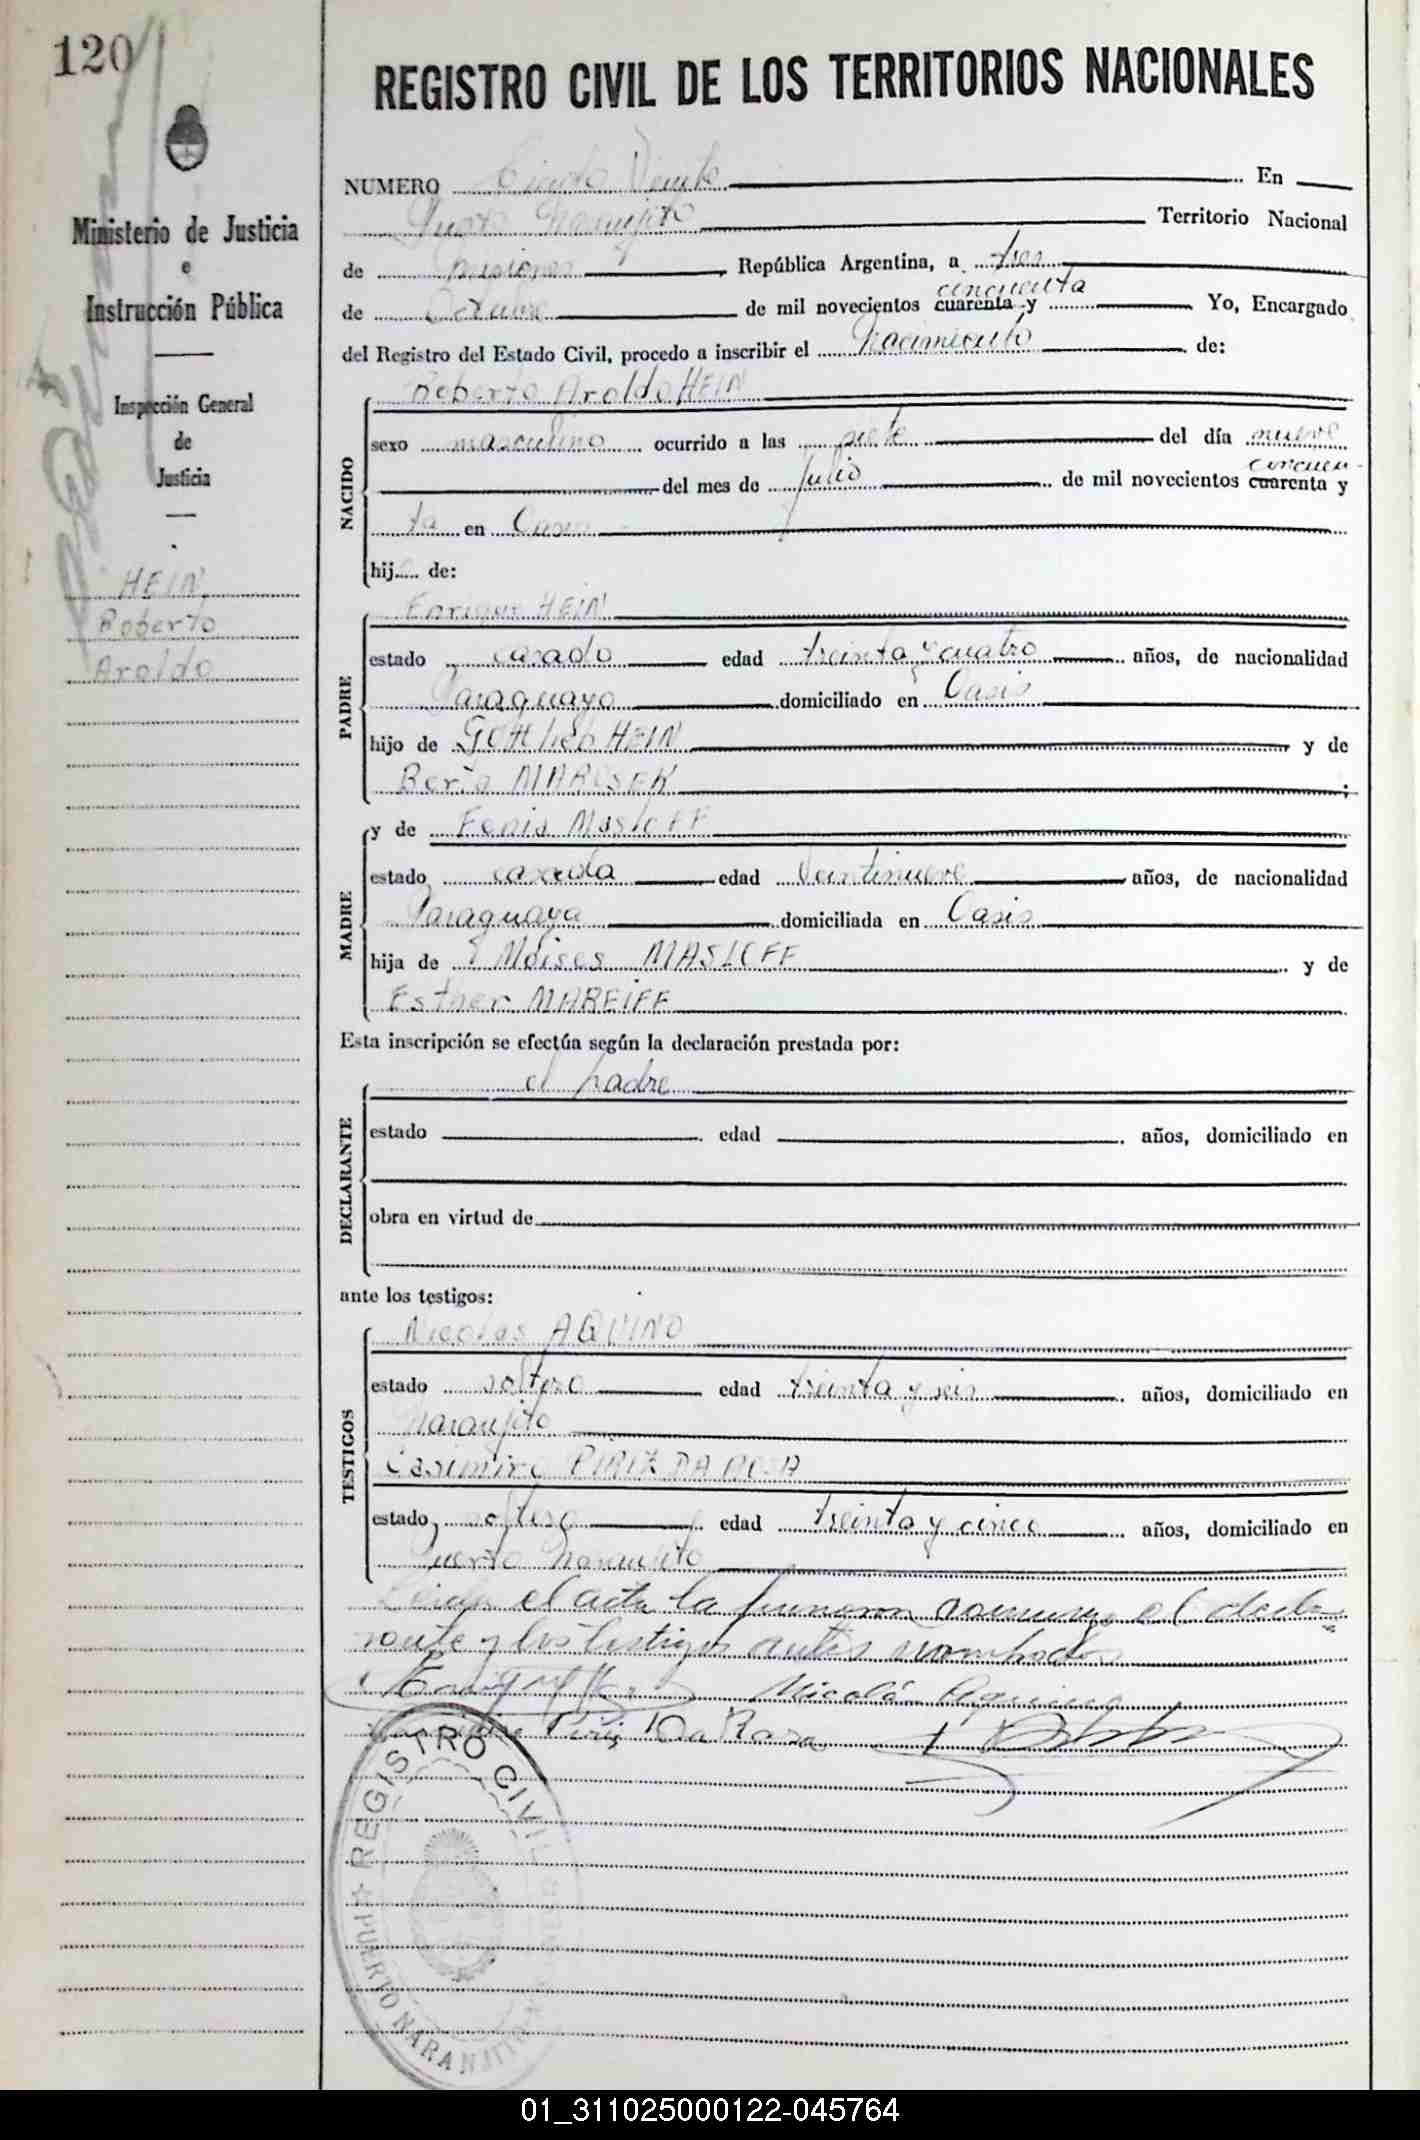 120
REGISTRO CIVIL DE LOS TERRITORIOS NACIONALES
Ministerio de Justicia
e
Instrucción Pública
Inspección General
de
Justicia
HEIN
Roberto
Aroldo
NUMERO Ciento Veinte En
Puerto Naranjito Territorio Nacional
de Misiones República Argentina, a tres
de Octubre de mil novecientos cuarenta y cincuenta Yo, Encargado
del Registro del Estado Civil, procedo a inscribir el Nacimiento de:
NACIDO
Roberto Aroldo HEIN
sexo masculino ocurrido a las siete del día nueve
del mes de Julio de mil novecientos cuarenta y cincuen-
ta en Oasis
hij de:
PADRE
Enrique HEIN
estado casado edad treinta y cuatro años, de nacionalidad
Paraguayo domiciliado en Oasis
hijo de Gottlieb HEIN y de
Berta ;
MADRE
y de Fenia Masloff
estado casada edad Veintinueve años, de nacionalidad
Paraguaya domiciliada en Oasis
hija de Moises MASLOFF y de
Esther MAREIFF
Esta inscripción se efectúa según la declaración prestada por:
DECLARANTE
el padre
estado edad años, domiciliado en
obra en virtud de
ante los testigos:
TESTIGOS
Nicolas AQUINO
estado soltero edad treinta y seis años, domiciliado en
Naranjito
Casimiro PIRIZ DA ROSA
estado soltero edad treinta y cinco años, domiciliado en
Puerto Naranjito
Leida el acta la firmaron conmigo el decla-
rante y los testigos antes nombrados
Nicolás Aquino
Casimiro Piriz Da Rosa
REGISTRO CIVIL
PUERTO NARANJITO
01_311025000122-045764